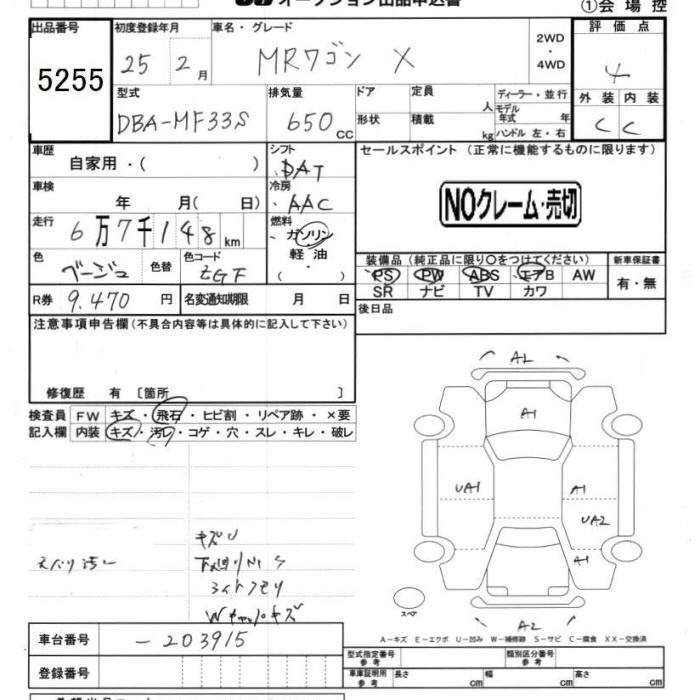 オークション出品申込書
①会場控
出品番号 初度登録年月 車名・グレード 評価点
5255 25 2月 MRワゴン X 2WD ・ 4WD 4
型式 排気量 ドア 定員 人 ディーラー・並行 外装 内装
DBA-MF33S 650 CC 形状 積載 kg モデル年式 年 ハンドル 左・右 C C
車歴 シフト セールスポイント（正常に機能するものに限ります）
自家用・( ) DAT
車検 冷房 NOクレーム・売切
年 月( 日) AAC
走行 燃料
6万7千148km ガソリン
軽油
・( )
色 色替 色コード 装備品（純正品に限り○をつけてください） 新車保証書
ベージュ ZGF PS PW ABS エアB AW 有・無
SR ナビ TV カワ
R券 9.470 円 名変通知期限 月 日 後日品
注意事項申告欄（不具合内容等は具体的に記入して下さい）
修復歴 有 〔箇所 〕
検査員 FW キズ・飛石・ヒビ割・リペア跡・×要
記入欄 内装 キズ・汚レ・コゲ・穴・スレ・キレ・破レ
AL
A1
UA1 A1
UA2
A1
スペア
A2
キズU
S
Wキャップキズ
A－キズ E－エクボ U－凹み W－補修跡 S－サビ C－腐食 XX－交換済
車台番号 －203915
型式指定番号 参考 類別区分番号 参考
登録番号 車庫証明用 参考 長さ cm 幅 cm 高さ cm